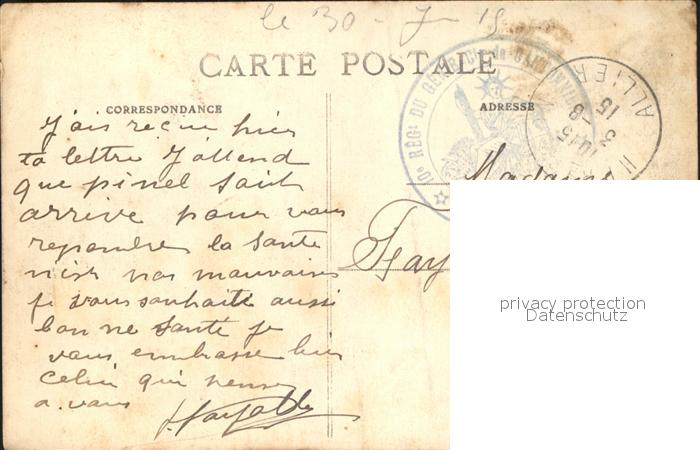 le 30 - J 15
CARTE POSTALE
CORRESPONDANCE
ADRESSE
J'ais reçue hier
ta lettre J'attend
que pinel soit
arrive pour vous
repondre la santé
n'est pas mauvaise
je vous souhaite aussi
bonne santé je
vous embrasse bien
celui qui pense
a vous
Madame
Fay
RÉGt DU GÉNIE Cie de
10 45
3 - 8
15
ALLIER
privacy protection
Datenschutz